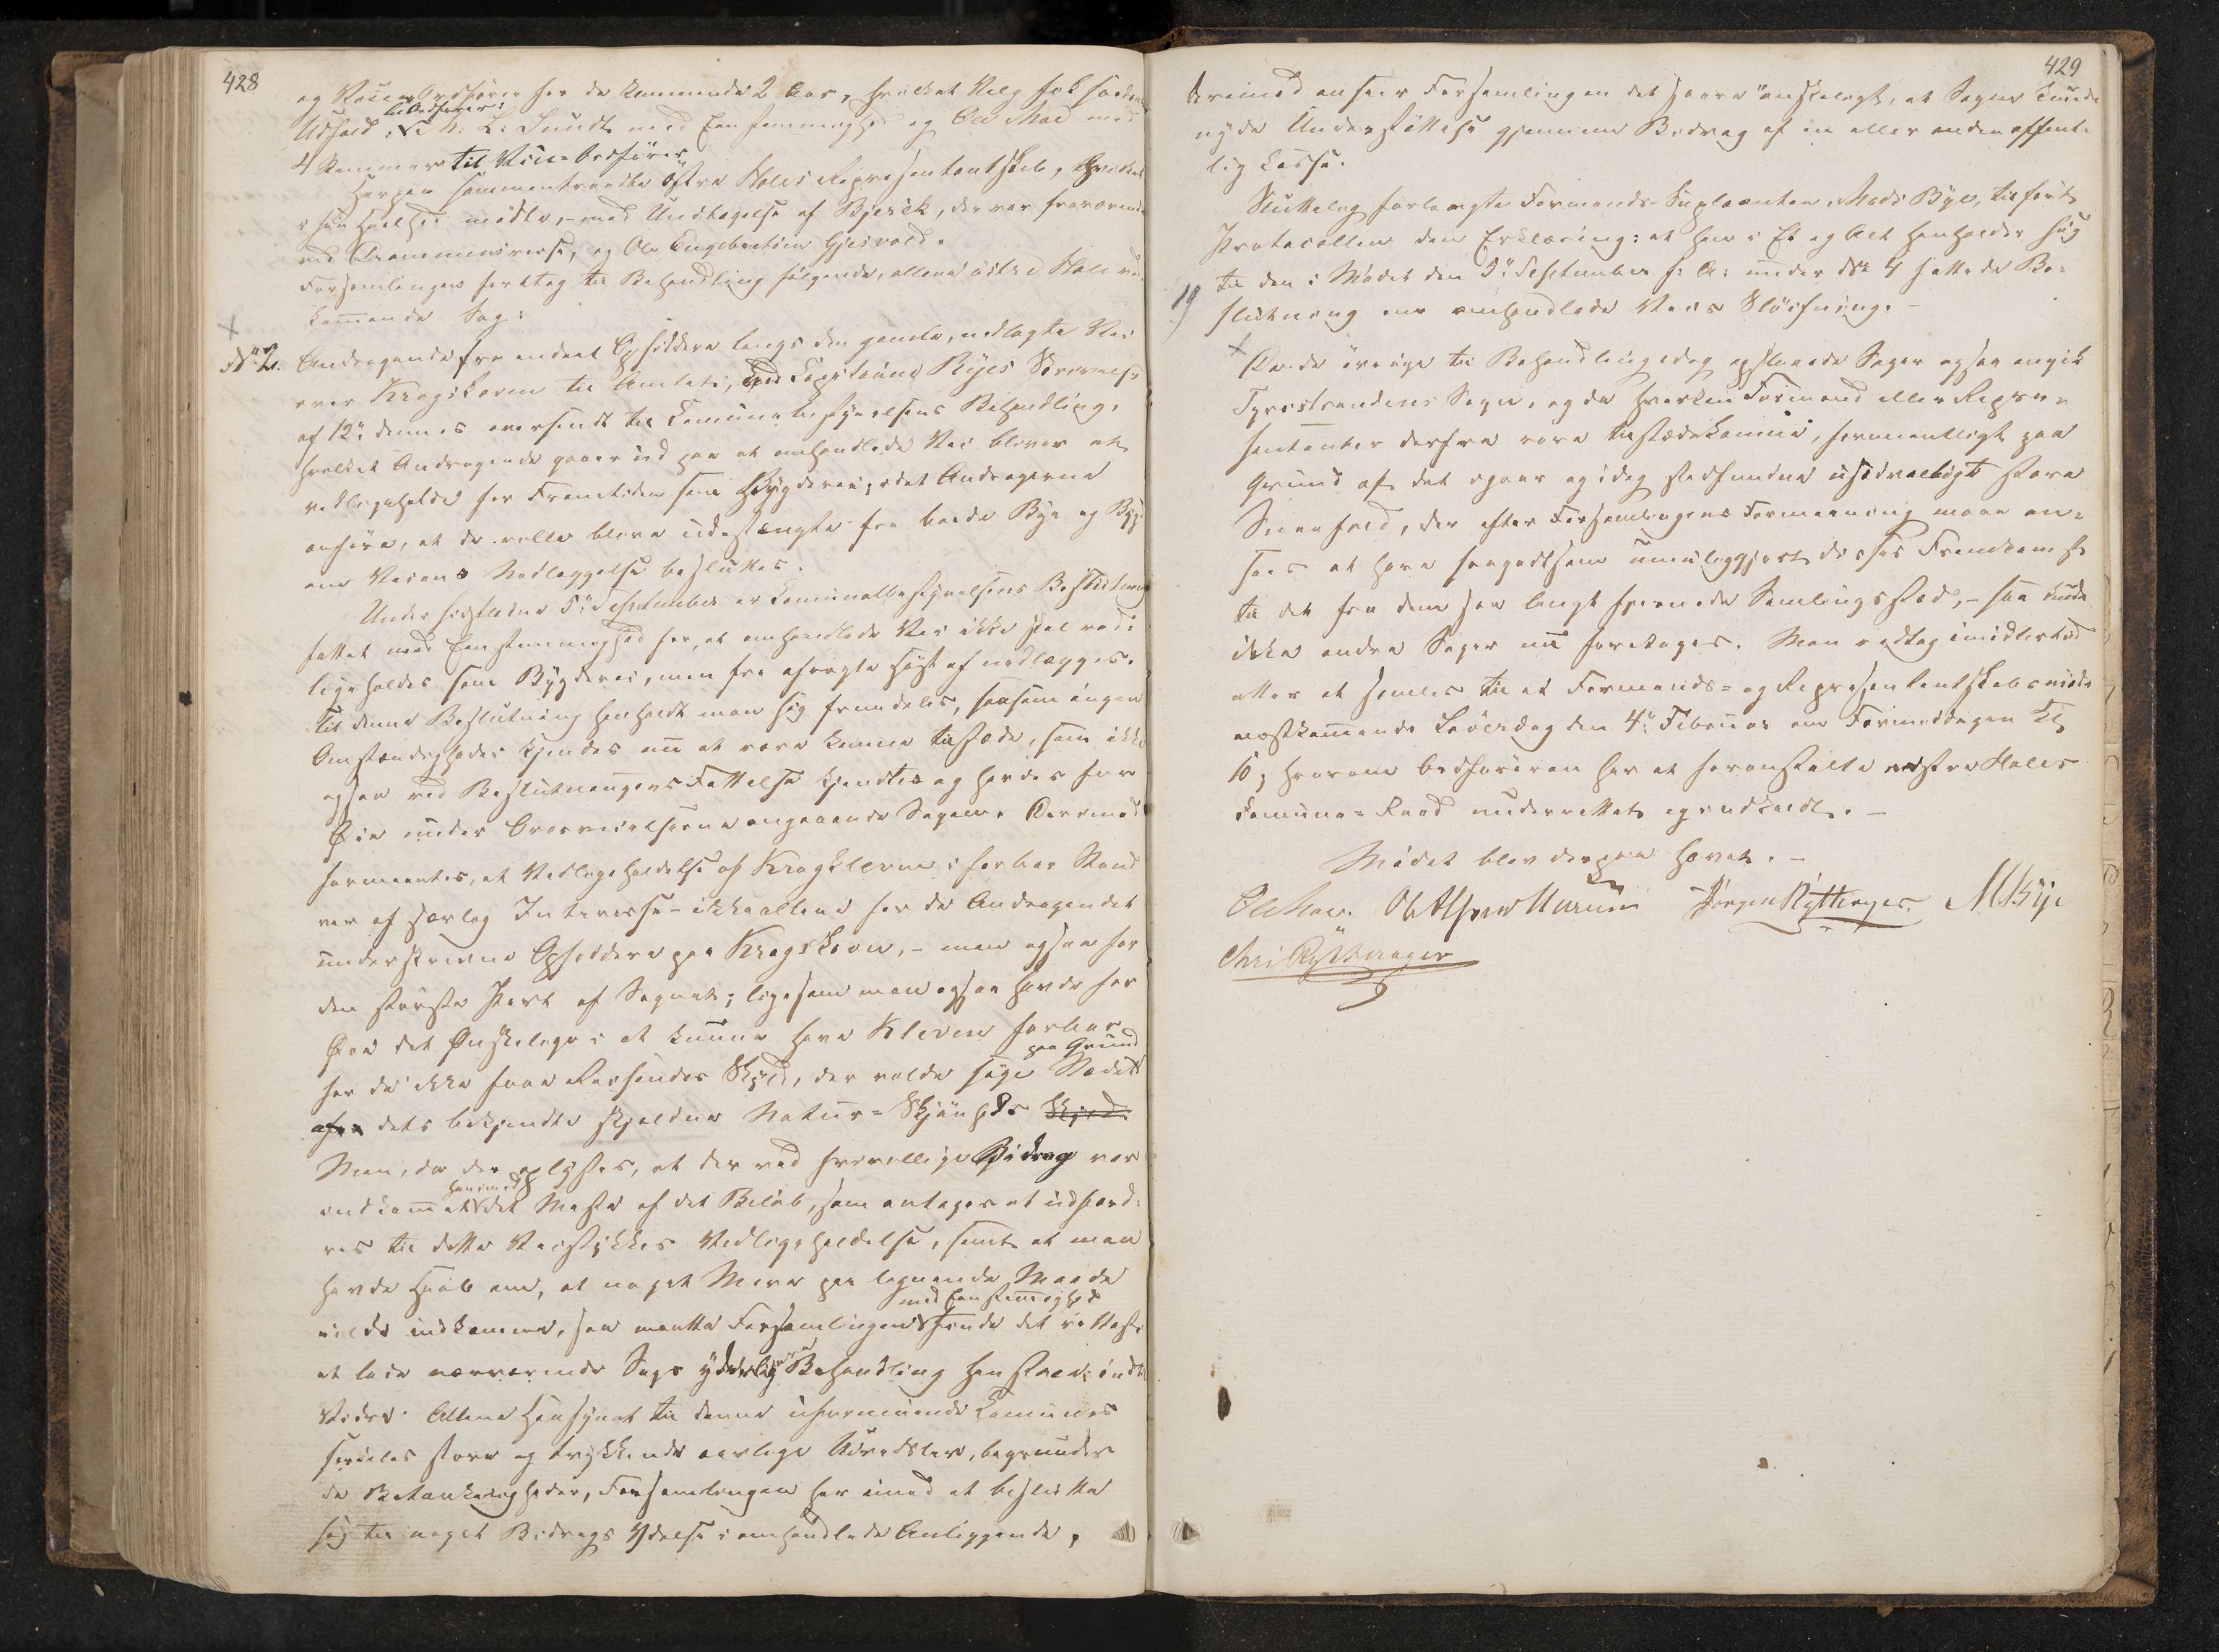 428
og Vice-Ordfører for de kommende 2 Aar, hvilket Valg fik saadant
til Ordfører:
Udfald: N: L: Sundt med Eenstemmighed og Ole Moe med
4 Stemmer til Vice-Ordfører
Herpaa sammentraadte østre Holes Repræsentantskab, hvilket
i sin Heelhed mødte, - med Undtagelse af Bjerck, der var fraværende
ved Drammensreise, og Ole Engebretsen Gjesvold.
Forsamlingen foretog til Behandling følgende, allene østre Hole ved-
kommende Sag:
No 2. Andragende fra endeel Opsiddere langs den gamle, nedlagte Vei
over Krogskoven til Amtet, ved Capitaine Byes Skrivelse
af 12te dennes oversendt til Communebestyrelsens Behandling,
hvilket Andragende gaaer ud paa at omhandlede Vei bliver at
vedligeholde for Fremtiden som Bygdevei; idet Andragerne
anføre, at de ville blive udestængte fra baade Bye og Bygd
om Veiens Nedlæggelse besluttes.
Under sidstledne 5te September er Communalbestyrelsens Beslutning
fattet med Eenstemmighed for, at omhandlede Vei ikke skal ved-
ligeholdes som Bygdevei, men fra afvigte Høst af nedlægges.
Til denne Beslutning henholdt man sig fremdeles, saasom ingen
Omstændigheder kjendes nu at være komne tilstæde, som ikke
ogsaa ved Beslutningens Fattelse kjendtes og havdes for
Øie under Overveielserne angaaende Sagen. Derimod
formeentes, at Vedligeholdelse af Krogkleven i farbar Stand
var af særlig Interesse - ikke allene for de Andragendet
underskrevne Opsiddere paa Krogskoven, - men ogsaa for
den største Part af Sognet; ligesom man ogsaa havde for
Øie det Ønskelige i at kunne have Kleven farbar
paa Grund
for de ikke faae Reisendes Skyld, der valde søge Stedet
af dets bekjendte sjeldne Natur-Skjønheds Skyld.
Men, da der oplystes, at der ved frivillige Bidrag var
henimod
indkommet det Meste af det Beløb, som antages at udford-
res til dette Veistykkes Vedligeholdelse, samt at man
havde Haab om, at noget Mere paa lignende Maade
med Eenstemmighed
vilde indkomme, saa maatte Forsamlingen finde det rettest
at lade nærværende Sags yderligere Behandling henstaae indtil
Videre. Allene Hensynet til denne uformuende Communes
særdeles store og trykkende aarlige Udredsler, begrunder
de Betænkeligheder, Forsamlingen har imod at beslutte
sig til noget Bidrags Ydelse i omhandlede Anliggende,
429
derimod ansaaer Forsamlingen det saare ønskeligt, at Sagen kunde
nyde Understøttelse gjennem Bidrag af en eller anden offent-
lig Casse.
Sluttelig forlangte Formands-Supleanten Mads Bye, tilført
Protocollen den Erklæring: at han i Et og Alt henholder sig
til den i Mødet den 5te September f: A: under No 4 fattede Be-
slutning om omhandlede Veis Sløifning. -
Da de øvrige til Behandling idag opstaaede Sager ogsaa angik
Tyristrandens Sogn, og da hverken Formænd eller Repræ-
sentanter derfra vare tilstædekomne, formentligt paa
Grund af det igaar og idag stedfundne usædvanligt store
Sneefald, der efter Forsamlingens Formeening maae an-
sees at have saagodtsom umuliggjort disses Fremkomst
til det fra dem saa langt fjernede Samlingssted, - saa kunde
ikke andre Sager nu foretages. Man vedtog imidlertid
atter at samles til et Formands- og Repræsentantskabsmøde
næstkommende Løverdag den 4de Februar om Formiddagen Kl
10; hvorom Ordføreren har at foranstalte vestre Holes
Commune-Raad underrettet og indkaldt. -
Mødet blev derpaa hævet. -
Ole Moe. Jørgen Rytterager. M Bye
Chr: Rytterager